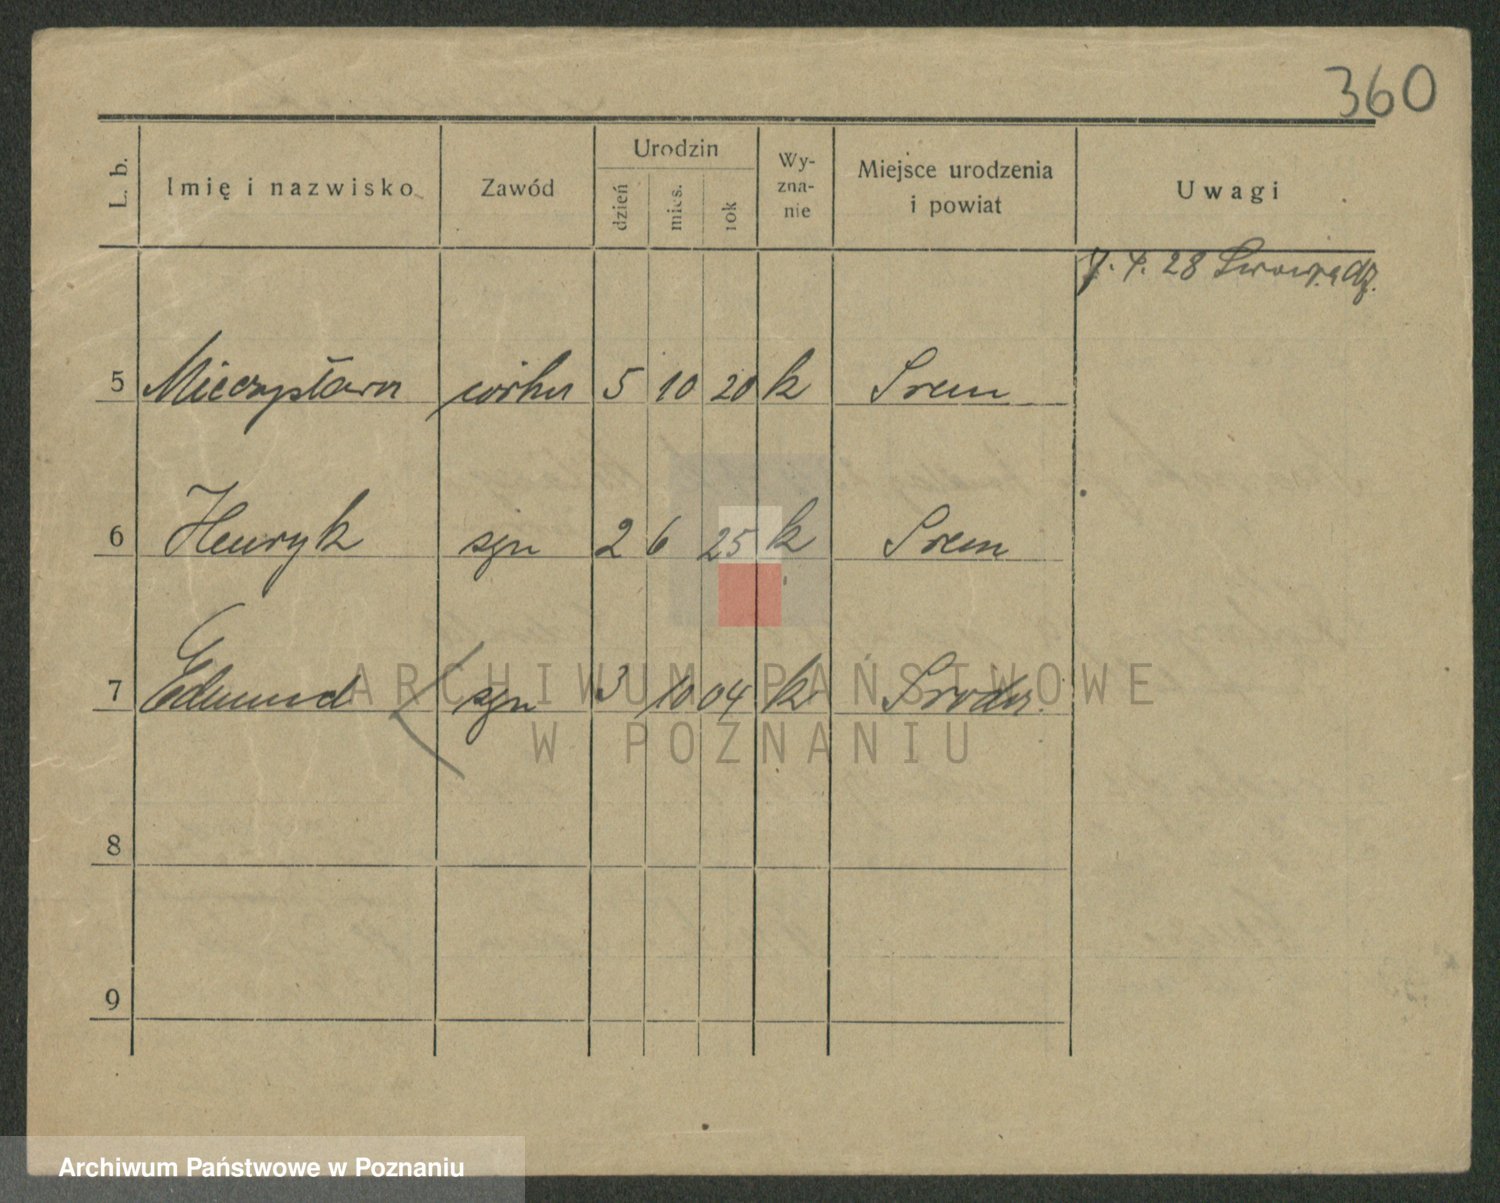 360
L. b. Imię i nazwisko Zawód Urodzin dzień mies. rok Wy-zna-nie Miejsce urodzenia i powiat Uwagi
7. 4. 28
5 Mieczysława córka 5 10 20 k Srem
6 Henryk syn 2 6 25 k Srem
7 Edmund syn 3 10 04 k Sroda
8
9
ARCHIWUM PAŃSTWOWE
W POZNANIU
Archiwum Państwowe w Poznaniu